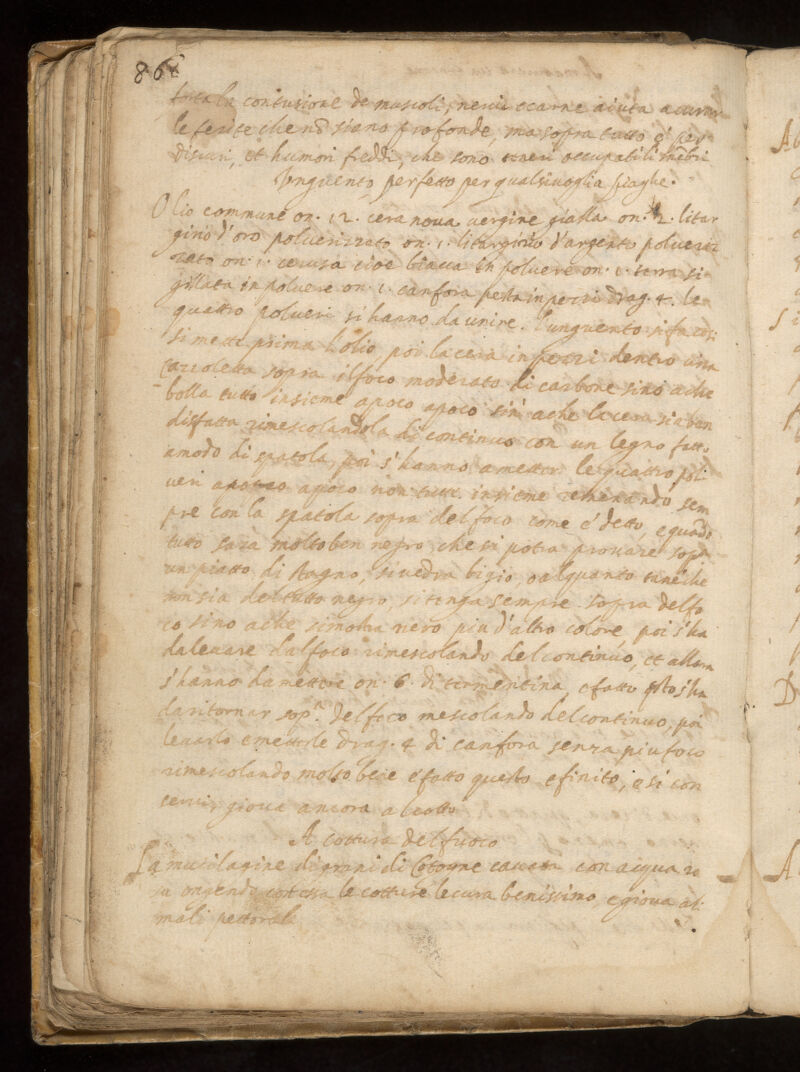 866
la contusione de muscoli, nervi e carne aiuta a curar
le ferite che nō siano profonde, ma sopra tutto è per
et humori freddi, che sono occupati li mēbri
Unguento perfetto per qualsivoglia piaghe.
Olio commune on. 12. cera nova vergine gialla on. 2. litar
girio d'oro polverizzato on. 1. litargirio d'argento polveriz
zato on. 1. cerusa cioe biacca in polvere on. 1. terra si
gillata in polvere on. 1. canfora pesta in pezzi drag. 4. le
quattro polveri si hanno da unire. l'unguento si fa cosi
si mette prima l'olio, poi la cera in pezzi dentro una
cazzoletta sopra il foco moderato di carbone sino a che
bolla tutto insieme apoco apoco sin' a che la cera sia ben
disfatta rimescolandola di continuo con un legno fatto
a modo di spatola, poi s'hanno a metter le quattro pol
veri apoco apoco non tutte insieme remenando sem
pre con la spatola sopra del foco come e' detto, e quādo
tutto sara molto ben negro, che si potra provare sopra
un piatto di stagno, si vedra bigio, o alquanto tane che
non sia del tutto negro, si tenga sempre sopra del fo
co sino a che simostra nero piu d'altro colore, poi s'ha
da levare dal foco rimescolando del continuo, et allora
s'hanno da mettere on. 6. di termentina, e fatto s'ha
da ritornar sop.a del foco mescolando del continuo, poi
levarlo e metterle drag. 4 di canfora senza piu foco
rimescolando molto bene e fatto questo e finito, e si con
servi, giova ancora a
A cottura del fuoco
La mucilagine di grani di Cotogne cavata con acqua ro
sa ongendo con essa le cotture le cura benissimo, e giova al
mali pettorali